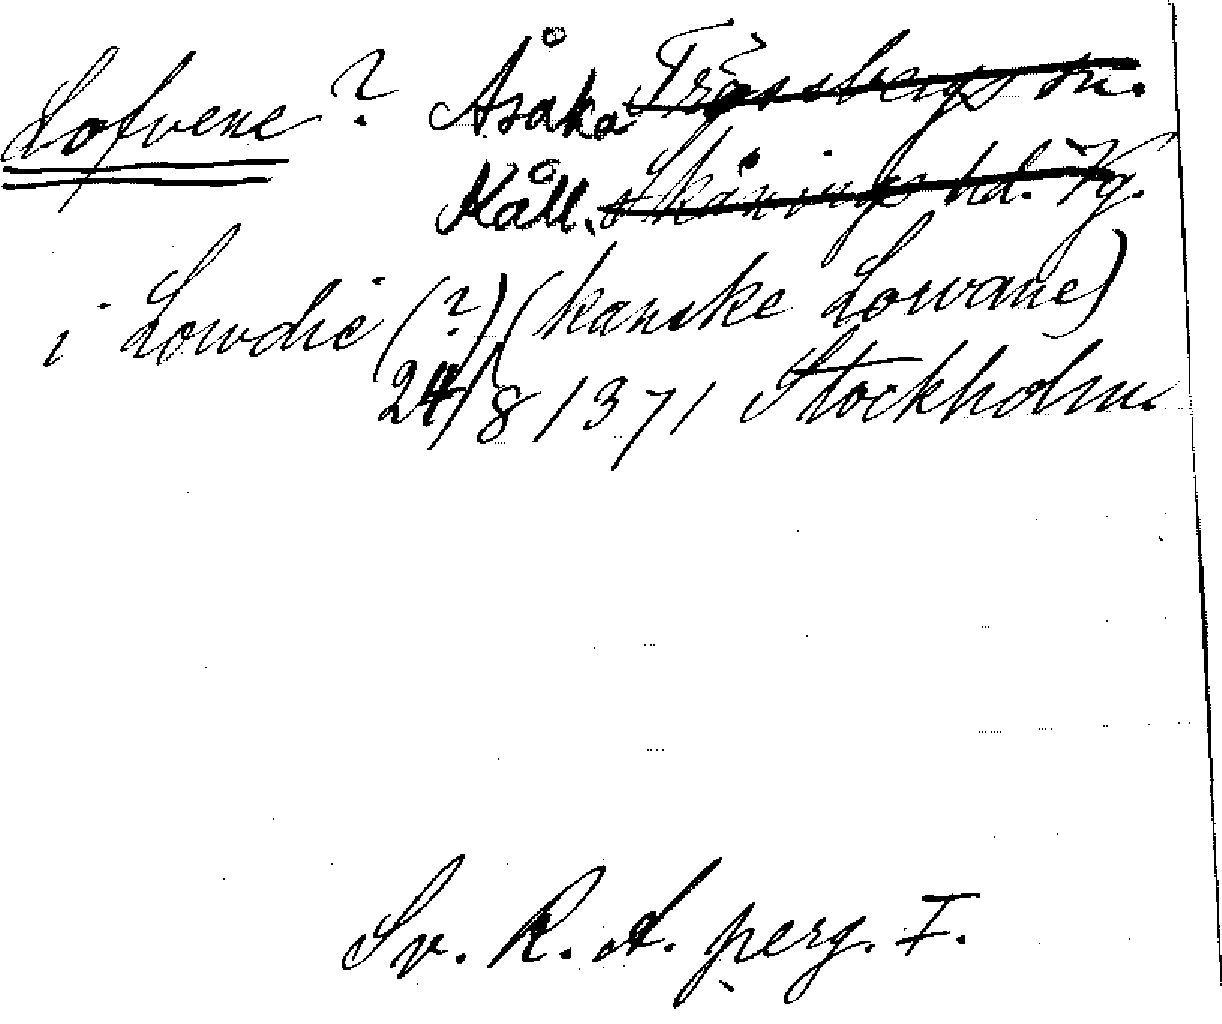 Lofvene? Åsaka Tråvsbergs sn.
Kåll. Skånings hd. Vg.
i Lowdie (?) (kanske Lowane)
24/8 1371 Stockholm.
Sv. R. A. perg. I.